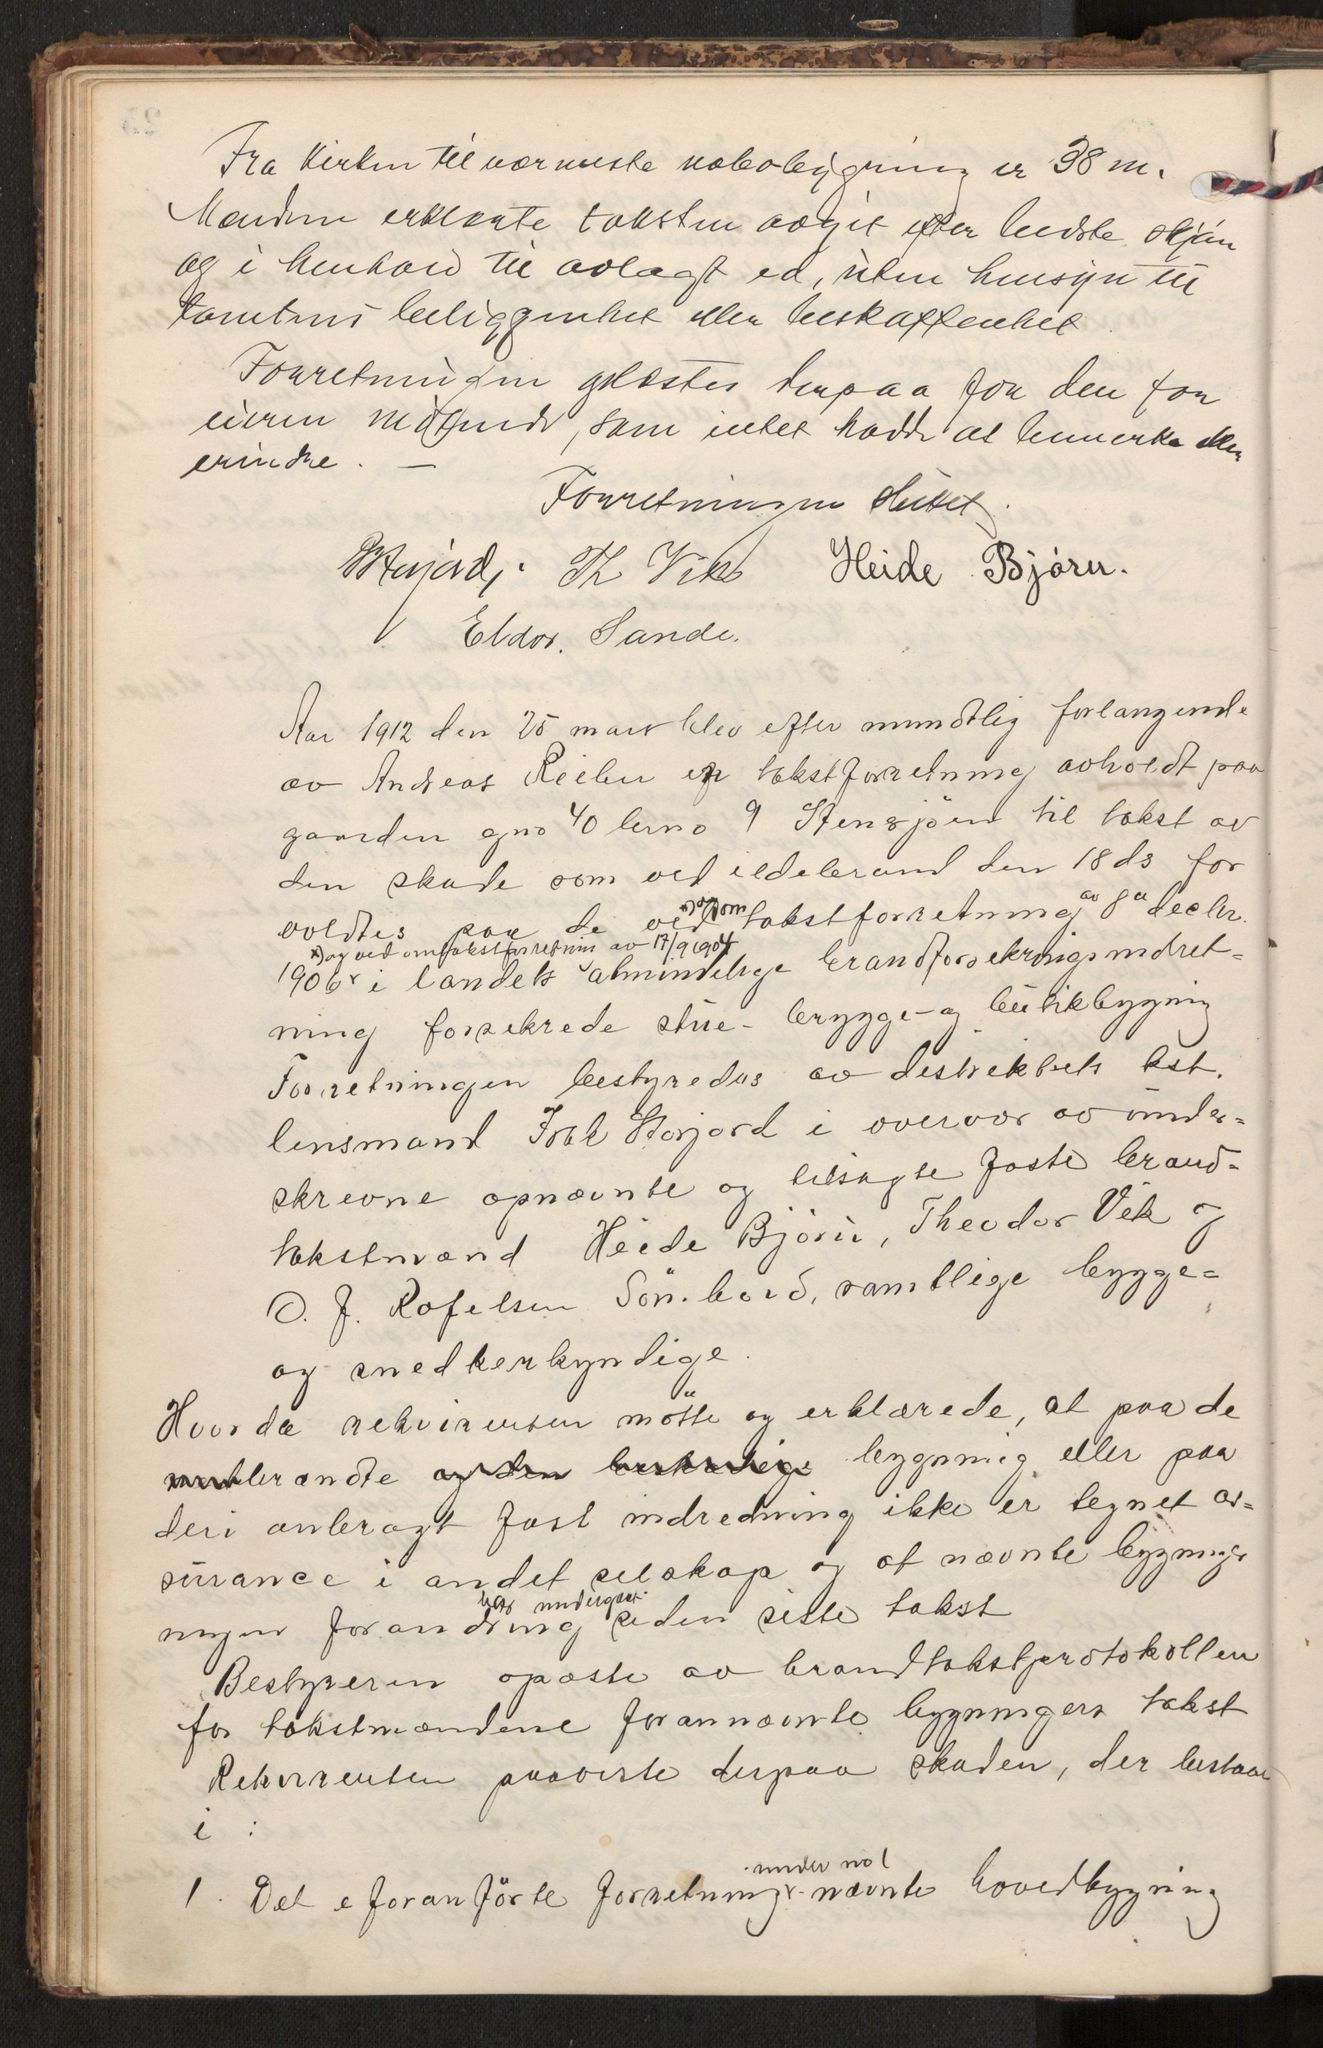 Fra Kirken til nærmeste nabobygning er 38 m.
Mændene erklærte taksten avgit efter bedste skjön
og i henhold til avlagt ed, uten hensyn til
tomtens beliggenhet eller beskaffenhet.
Forretningen oplæstes derpaa for den for
eieren mötende, som intet hadde at bemerke eller
erindre. —
Forretningen sluttet.
Storjord, Th Vik Heide Bjørn.
Eldor. Sande.
Aar 1912 den 25 mars blev efter mundtlig forlangende
av Andreas en takstforretning avholdt paa
gaarden gno 40 bruno 9 Stensjöen til takst av
den skade som ved ildebrand den 18 ds for
voldtes paa de ved takstforretning av 8de decbr.
x) og ved omtakstforretnin av 17/9 1904
1906x i landets almindelige brandforsekringsindret-
ning forsekrede stue- brygge- og butikbygning
Forretningen bestyredes av destriktets kst.
lensmand Isak Storjord i overvær av under-
skrevne opnævnte og tilsagte faste brand-
takstmænd Heide Bjørn, Theodor Vik og
O. J. Rafelsen Sön. bord, samtlige bygge-
og snedkerkyndige.
Hvorda rekvirenten mötte og erklærede, at paa de
nedbrændte og den beskadige bygning eller paa
deri anbragt fast indredning ikke er tegnet as-
surance i andet selskap og at nævnte bygnings
har undergaat
ingen forandring siden siste takst
Bestyreren opæste av brandtakstprotokollen
for takstmændene forannævnte bygningers takst
Rekvirenten paaviste derpaa skaden, der bestaar
i :
under no 1
1. Det i foranförte forretning nævnte hovedbygning